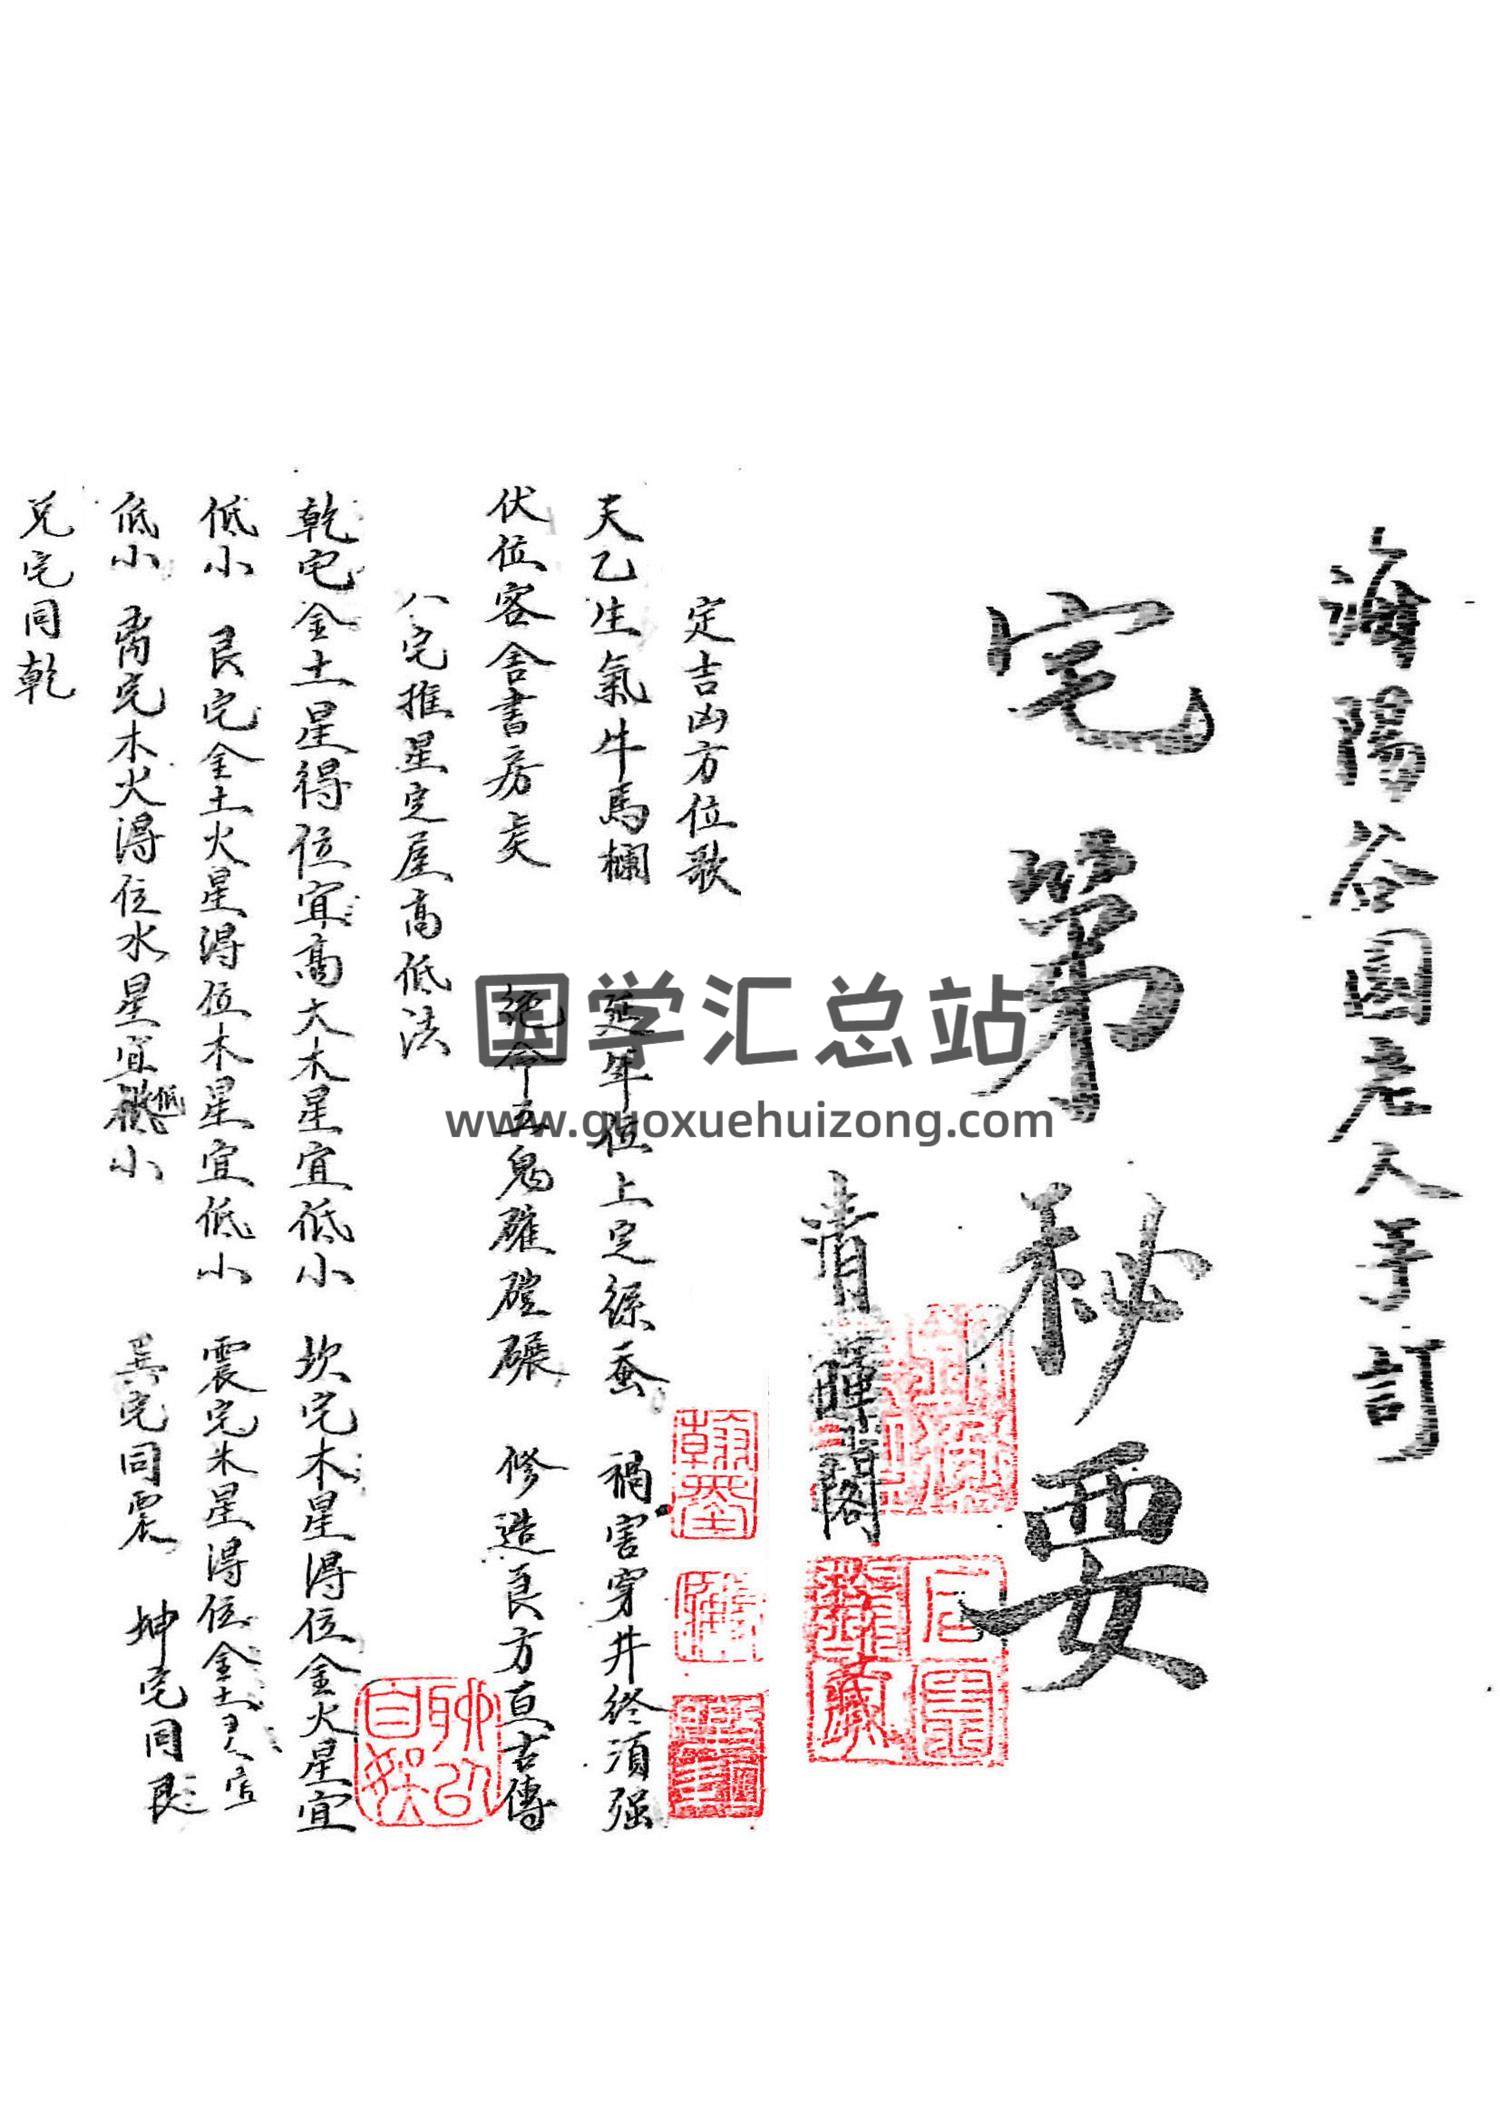 海陽谷園老人手訂
宅第秘要
清暉閣
藏
定吉凶方位歌
天乙生氣牛馬欄 延年位上定綵蚕 禍害穿井終須强
伏位客舍書房矣 絶命五鬼碓磑碾 修造良方亘古傳
八宅推星定屋高低法
乾宅金土星得位宜高大木星宜低小 坎宅木星得位金火星宜
低小 艮宅金土火星得位木星宜低小 震宅木星得位金土星宜
低小 离宅木火得位水星宜低小 巽宅同震 坤宅同艮
兑宅同乾
翰墨
聊以自娱
国学汇总站
www.guoxuehuizong.com